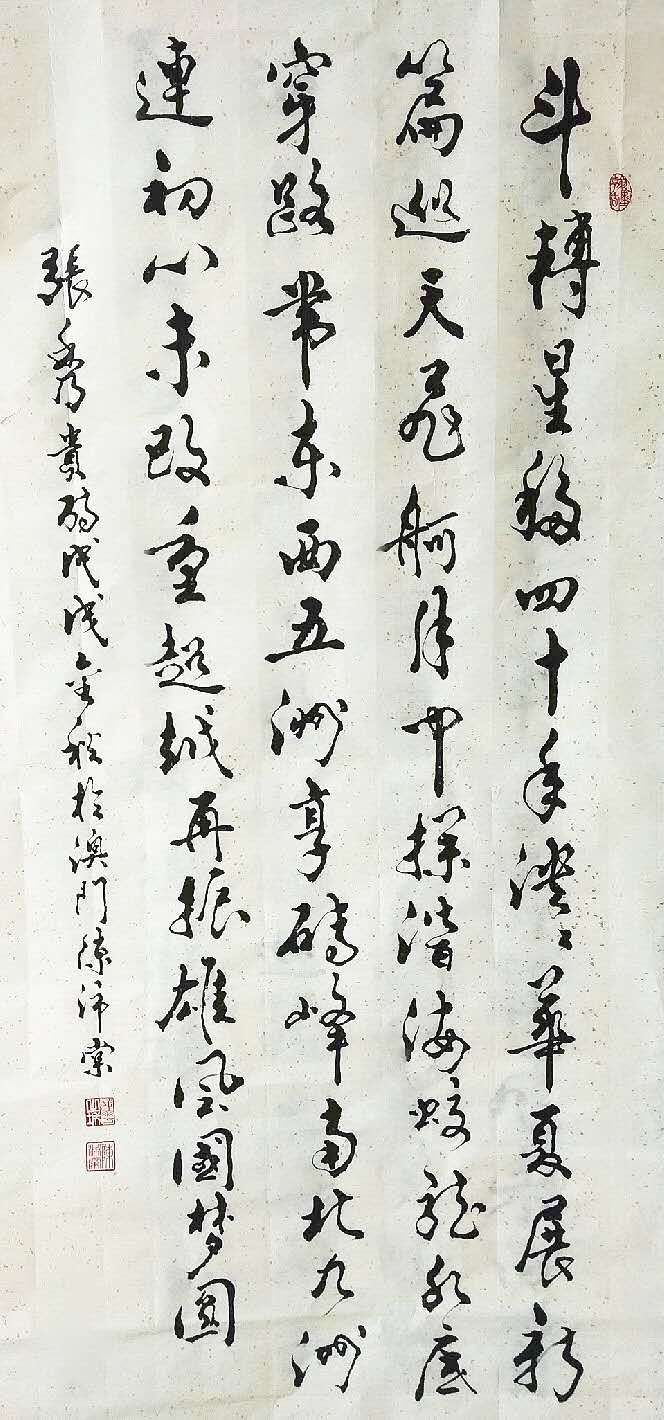 斗轉星移四十年華夏展新
篇巡天飛舸月中探潛海蛟龍水底
穿路帶東西五洲享磚峰南北九洲
連初心未改重超越再振雄風國梦圓
張秀貴詩戊戌金秋於澳門陳沛棠